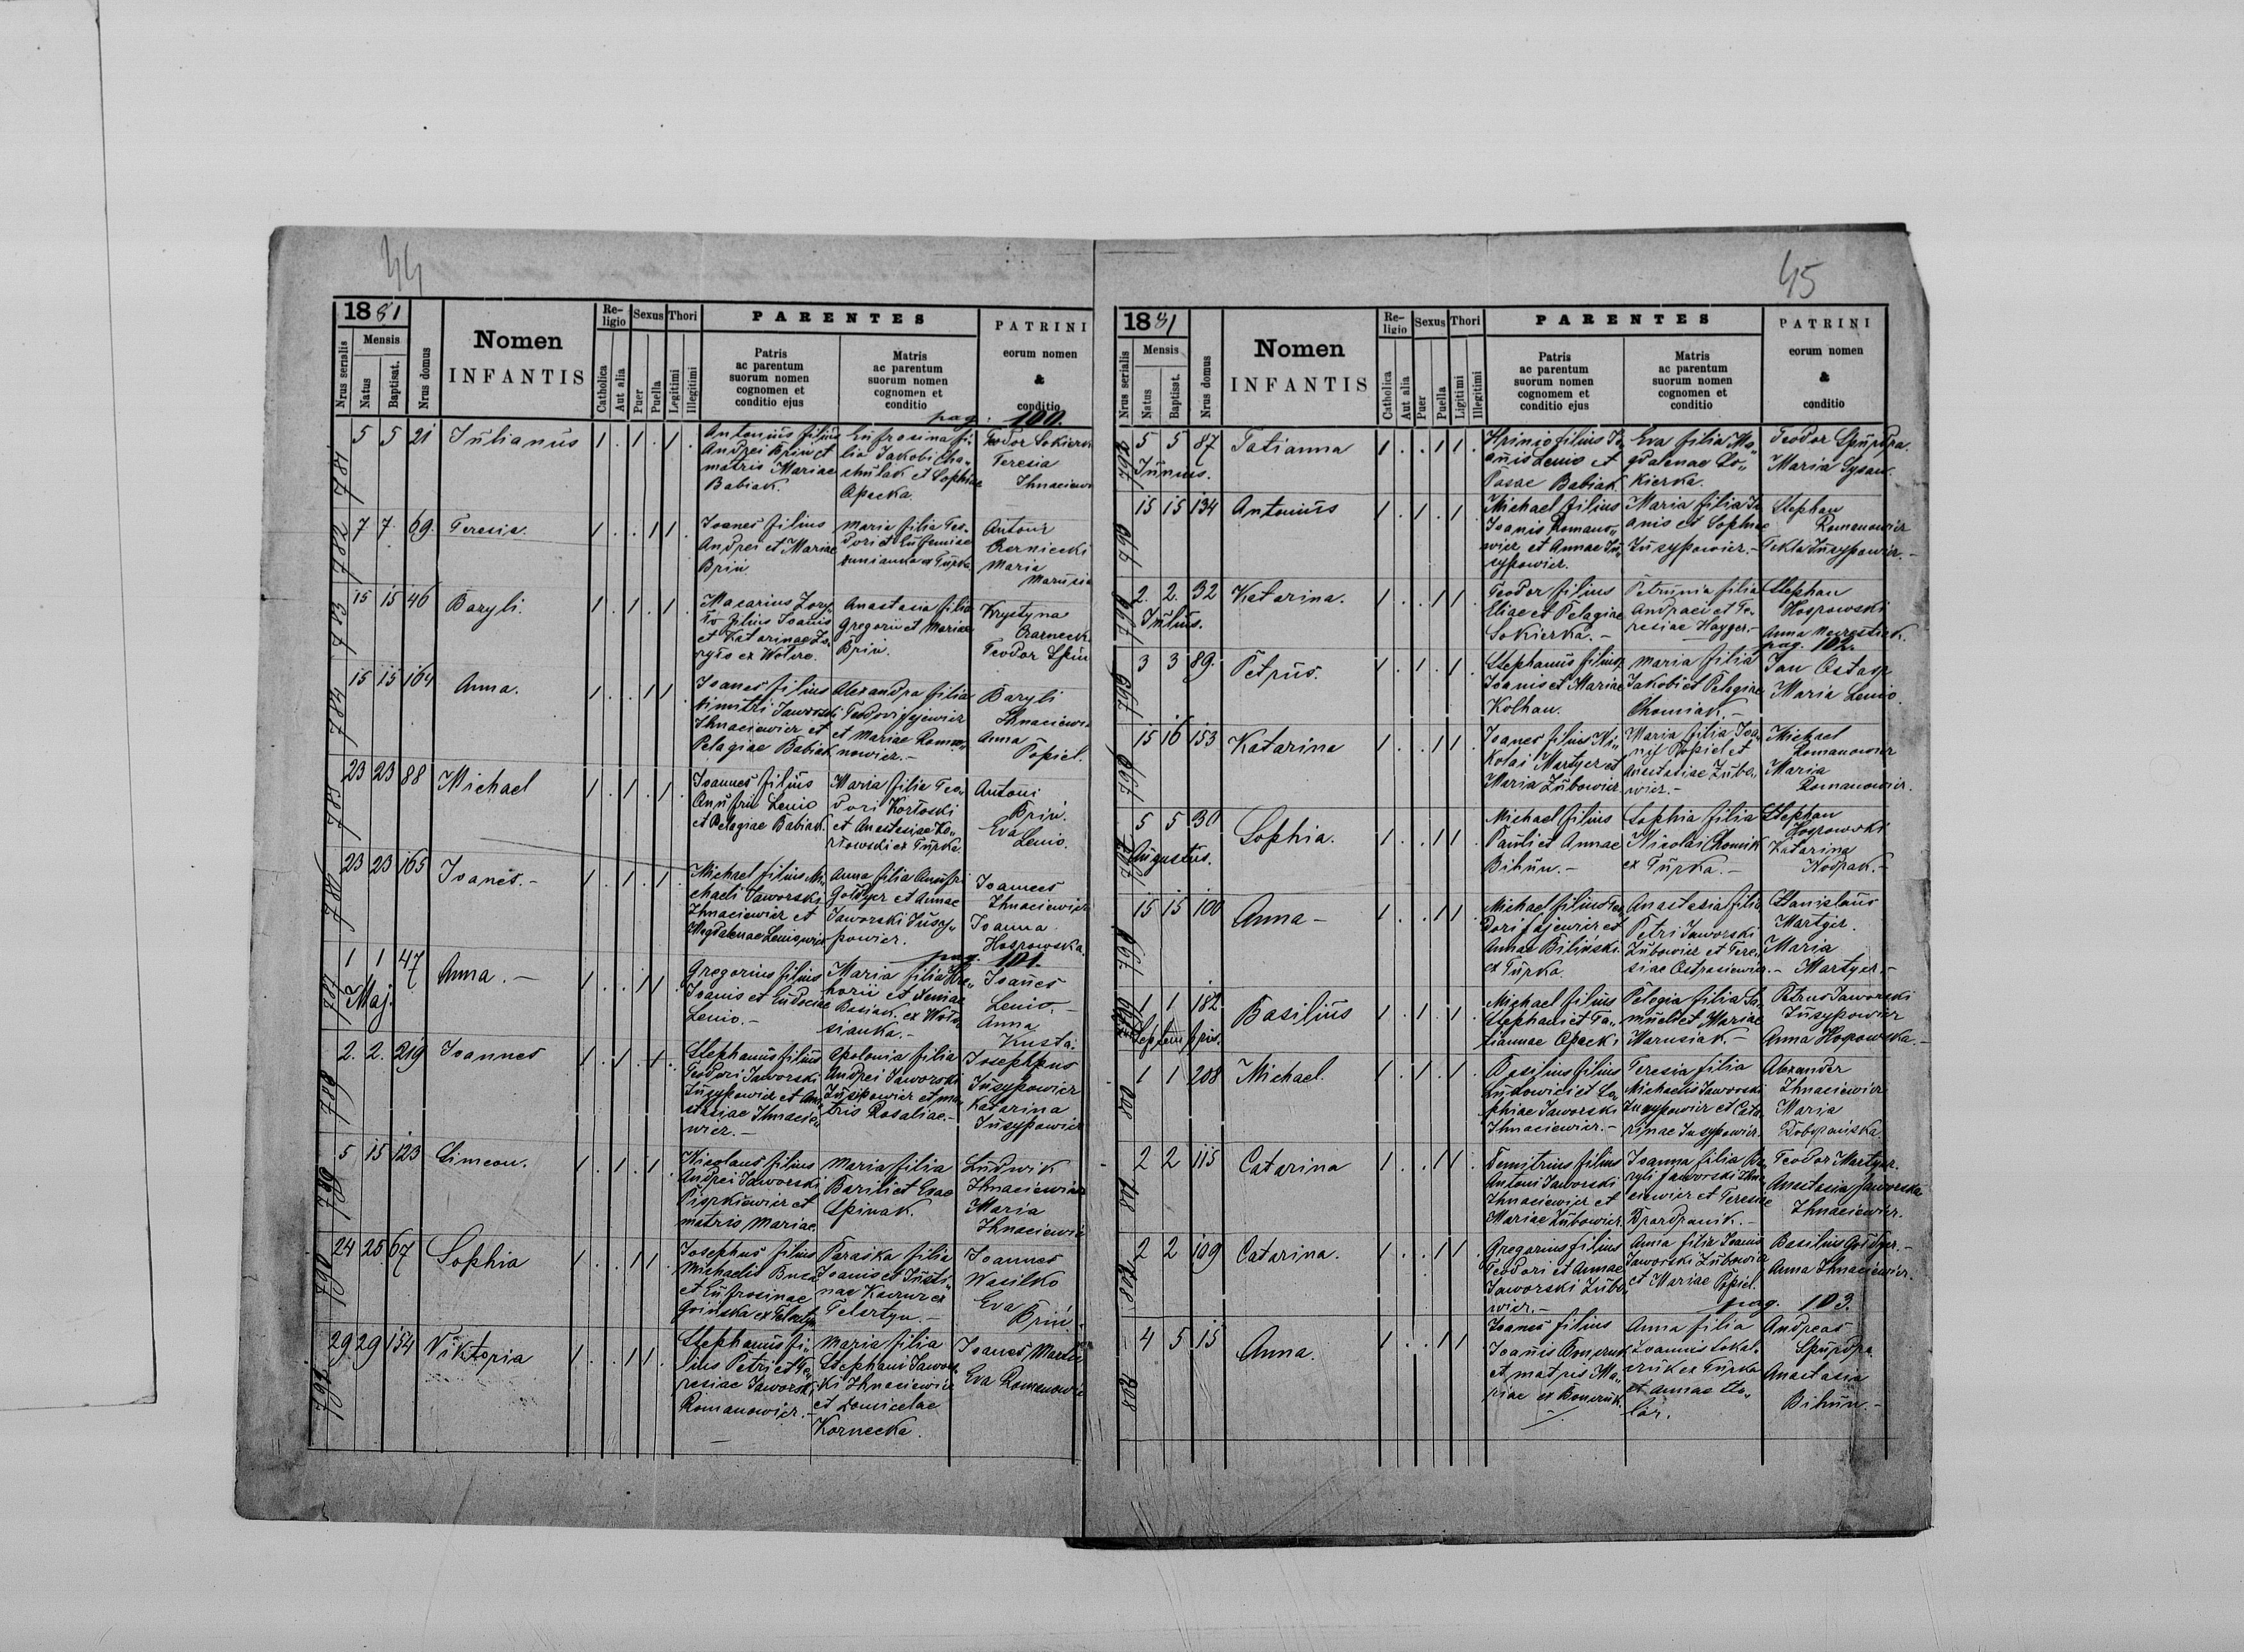 44
1881
Nrus serialis
Mensis
Natus
Baptisat.
Nrus domus
Nomen
INFANTIS
Re-
ligio
Catholica
Aut alia
Sexus
Puer
Puella
Thori
Legitimi
Illegitimi
PARENTES
Patris
ac parentum
suorum nomen
cognomen et
conditio ejus
Matris
ac parentum
suorum nomen
cognomen et
conditio
PATRINI
eorum nomen
&
conditio
pag. 100.
781 5 5 21 Julianus 1 . 1 . 1 .
Antonius filius
Andrei Brin et
matris Mariae
Babiak.
Eufrosina fi-
lia Jakobi Cha„
chulak et Sophiae
Opacka.
Teodor Sokierka
Teresia
Ihnaciewi
782 7 7 69. Teresia. 1 . . 1 1 .
Joanes filius
Andrei et Mariae
Brin.
Maria filia Teo-
dori et Eufemiae
ex Turka.
Antoni
Czerniecki
Maria
Marusia
783 15 15 46 Bazyli. 1 . 1 . 1 .
Macarius Zory„
filius Joanis
et Katarinae Zo„
ryło ex Wołcze.
Anastasia filia
Gregorii et Mariae
Brin.
Krystyna
Czarnecka
Teodor Spin
784 15 15 164 Anna. 1 . . 1 1 .
Joanes filius
Dimitri Jaworski
Ihnaciewicz et
Pelagiae Babiak
Alexandra filia
Teodori Jajewicz
et Mariae Roma„
nowicz.-
Bazyli
Ihnaciewicz
Anna
Popiel.
785 23 23 88 Michael 1 . 1 . 1 .
Joannes filius
Onufrii Lenio
et Pelagiae Babiak.
Maria filia Teo„
dori Kozłoski
et Anastasiae Ko„
złowski ex Turka.
Antoni
Brin.
Eva
Lenio.
786 23 23 165 Joanes.- 1 . 1 . 1 .
Michael filius Mi„
chaeli Jaworski
Ihnaciewicz et
Magdalenae Leniowicz
Anna filia Onufri
Gołdyer et Annae
Jaworski Jusy„
powicz.
Joannes
Ihnaciewicz
Joanna
Hosrowska.
pag. 101.
787 1 1 47 Anna.- 1 . . 1 1 .
Maj.
Gregorius filius
Joanis et Eudociae
Lenio.-
Maria filia Hre„
horii et Xeniae
Basiak ex Woło„
sianka.-
Joanes
Lenio.-
Anna
Kusta.
788 2. 2. 219 Joannes 1 . 1 . 1 .
Stephanus filius
Teodori Jaworski
Jusypowicz et Ana„
stasiae Ihnacie„
wicz.-
Apolonia filia
Andrei Jaworski
Jusipowicz et ma„
tris Rosaliae.-
Josephus
Jusypowicz
Katarina
Jusypowicz
789 5 15 123 Simeon. 1 . 1 . 1 .
Nicolaus filius
Andrei Jaworski
et
matris Mariae.
Maria filia
Basili et Evae
Spinak.
Ludwik
Ihnaciewicz
Maria
Ihnaciewicz
790 24 25 67 Sophia 1 . . 1 1 .
Josephus filius
Michaelis
et Eufrosinae
Paraska filia
Joanis et Justi„
nae ex
Joannes
Wasilko
Eva
Brin.
791 29 29 154 Viktoria 1 . . 1 1 .
Stephanus fi„
lius Petri et Te„
resiae Jaworski
Romanowicz.-
Maria filia
Stephani Jawor„
ki Ihnaciewicz
et Domicelae
Kornecka.
Joanes Marty
Eva Romanowicz
45
1881
Nrus serialis
Mensis
Natus
Baptisat.
Nrus domus
Nomen
INFANTIS
Re-
ligio
Catholica
Aut alia
Sexus
Puer
Puella
Thori
Ligitimi
Illegitimi
PARENTES
Patris
ac parentum
suorum nomen
cognomem et
conditio ejus
Matris
ac parentum
suorum nomen
cognomen et
conditio
PATRINI
eorum nomen
&
conditio
792 5 5 87 Tatianna 1 . . 1 1 .
Junius.
Hrinio filius Jo„
anis Lenio et
Babiak.
Eva filia Ma„
gdalenae So„
kierka.
Teodor
Maria Sysak.
793 15 15 134 Antonius 1 . 1 . 1 .
Michael filius
Joanis Romano„
wicz et Annae Ju„
sypowicz.
Maria filia Jo
anis et Sophiae
Jusypowicz.-
Stephan
Romanowicz
Tekla Jusypowicz.-
794 2. 2. 32 Katarina. 1 . . 1 1 .
Julius.
Teodor filius
Eliae et Pelagiae
Sokierka.-
Petrunia filia
Andrei et Te„
resiae Hayger.-
Stephan
Hosrowski
Anna
pag. 102.
795 3 3 89. Petrus. 1 . 1 . 1 .
Stephanus filius
Joanis et Mariae
Kolhan.
Maria filia
Jakobi et Pelagiae
Chomiak.-
Jan Ostasz
Maria Lenio.
796 15 16 153 Katarina 1 . . 1 1 .
Joanes filius Ni„
kolai Martyer et
Maria Zubowicz
Maria filia Joa„
nis Popiel et
Anastasiae Zubo„
wicz.-
Michael
Romanowicz
Maria
Romanowicz.
797 5 5 30 Sophia. 1 . . 1 1 .
Augustus.
Michael filius
Pauli et Annae
Bihun.-
Sophia filia
Nicolai Chomik
ex Turka.-
Stephan
Hosrowski
Katarina
Hosrak.-
798 15 15 100 Anna- 1 . . 1 1 .
Michael filius Teo„
dori Jajewicz et
Annae Biliński
ex Turka.
Anastasia filia
Petri Jaworski
Zubowicz et Tere„
siae
Stanislaus
Martyer.
Maria
Martyer.-
799 1 1 182 Basilius 1 . 1 . 1 .
September.
Michael filius
Stephani et Ta„
tiannae Opacki
Pelagia filia Sa„
mueli et Mariae
Marusiak.-
Petrus Jaworski
Jusypowicz
Anna Hosrowska.-
800 1 1 208 Michael. 1 . 1 . 1 .
Basilius filius
Ludowici et So„
phiae Jaworski
Ihnaciewicz.-
Teresia filia
Michaelis Jaworski
Jusypowicz et Cata„
rinae Jusypowicz.
Alexander
Ihnaciewicz
Maria
Dobrzańska.
801 2 2 115 Catarina 1 . . 1 1 .
Demitrius filius
Antoni Jaworski
Ihnaciewicz et
Mariae Zubowicz.
Joanna filia Ba„
zyli Jaworski Ihna„
ciewicz et Teresiae
Teodor Martyer.
Anastasia Jaworska
Ihnaciewicz.
802 2 2 109 Catarina. 1 . . 1 1 .
Gregorius filius
Teodori et Annae
Jaworski Zubo„
wicz.-
Anna filia Joanis
Jaworski Zubowicz
et Mariae Popiel.
Basilius Gołdyer.-
Anna Ihnaciewicz.
pag. 103.
803 4 5 15 Anna. 1 . . 1 1
Joanes filius
Joanis
et matris Ma„
riae ex
Anna filia
Joannis
ex Turka
et Annae
Andreas
Anastasia
Bihun.-